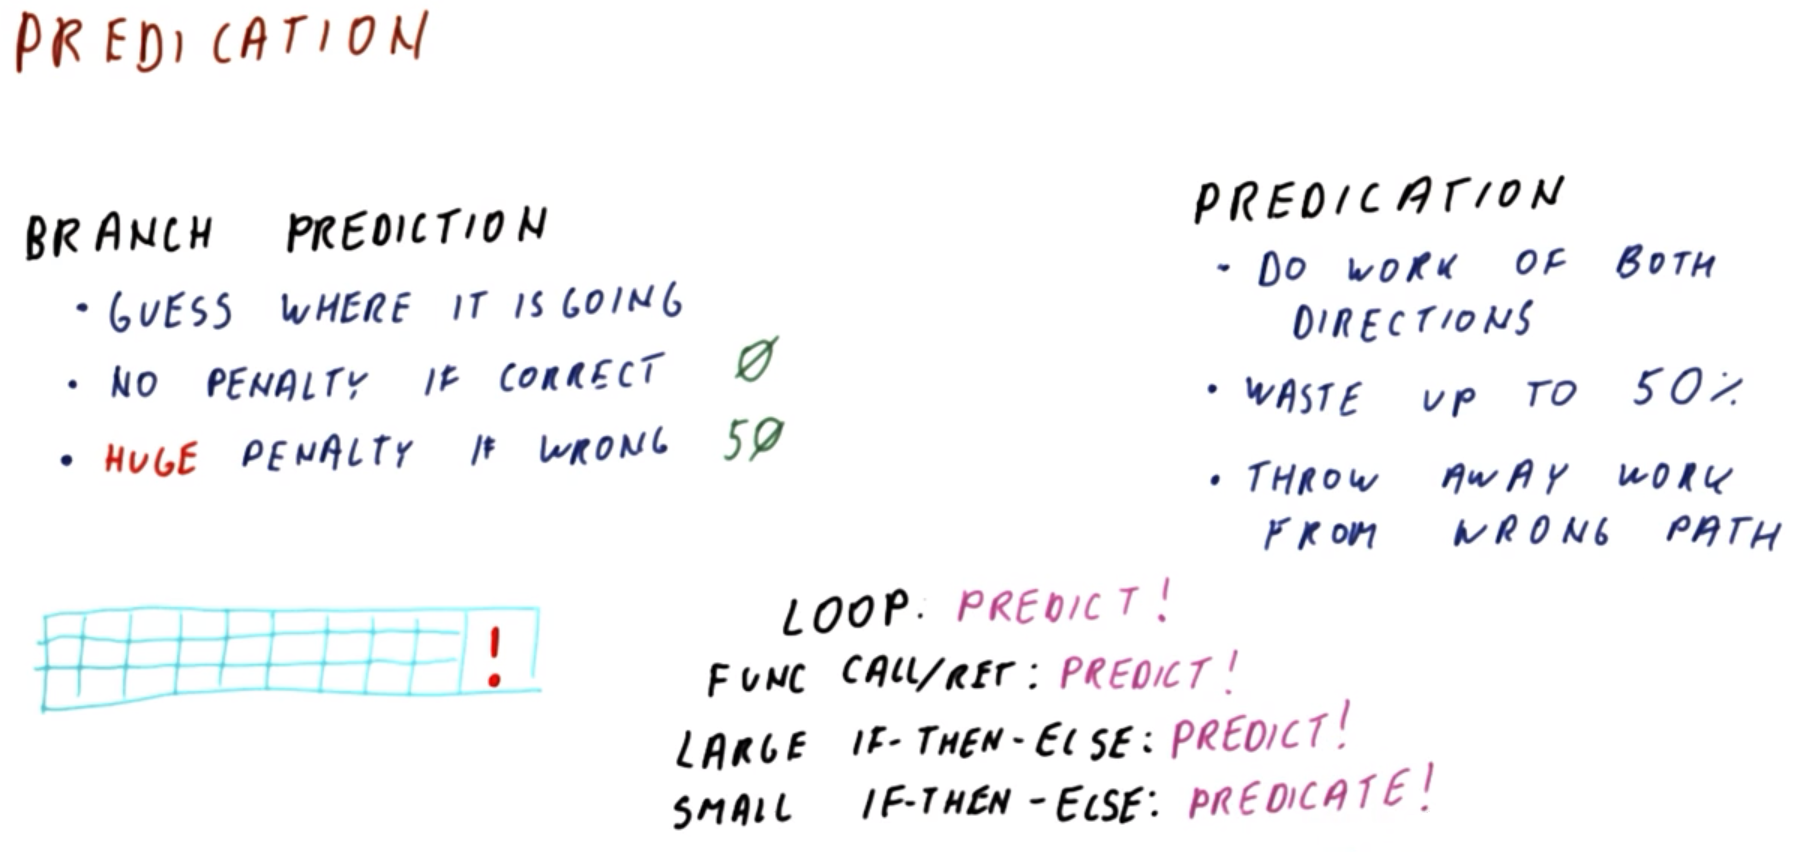 PREDICATION
BRANCH PREDICTION
• GUESS WHERE IT IS GOING
• NO PENALTY IF CORRECT 0
• HUGE PENALTY IF WRONG 50
PREDICATION
- DO WORK OF BOTH
DIRECTIONS
• WASTE UP TO 50%
• THROW AWAY WORK
FROM WRONG PATH
!
LOOP: PREDICT!
FUNC CALL/RET: PREDICT!
LARGE IF-THEN-ELSE: PREDICT!
SMALL IF-THEN-ELSE: PREDICATE!